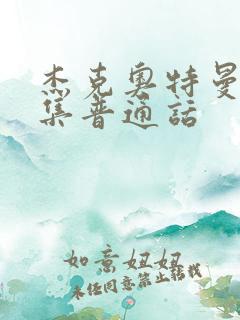 杰克奥特曼
集普通话
如意妞妞
未经同意禁止转载